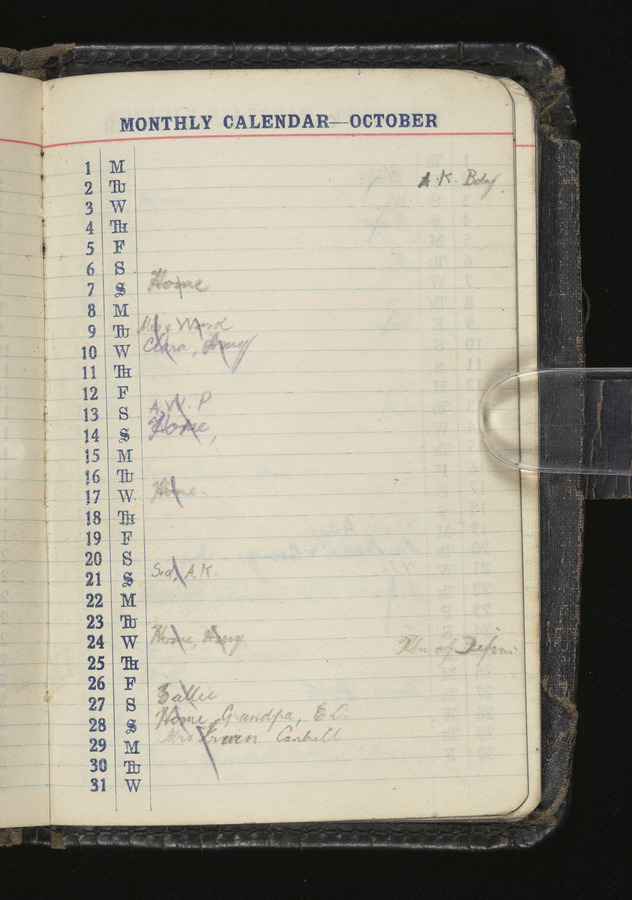 MONTHLY CALENDAR—OCTOBER
1 M
2 Tu A.K. Bday.
3 W
4 Th
5 F
6 S
7 S Home
8 M
9 Tu Ward
10 W Clara,
11 Th
12 F
13 S A.W.P
14 S Home,
15 M
16 Tu
17 W Home.
18 Th
19 F
20 S
21 S Sid, A.K.
22 M
23 Tu
24 W Home,
25 Th
26 F
27 S Sallie
28 S Home, Grandpa, E.C.
29 M Mrs
30 Tu
31 W